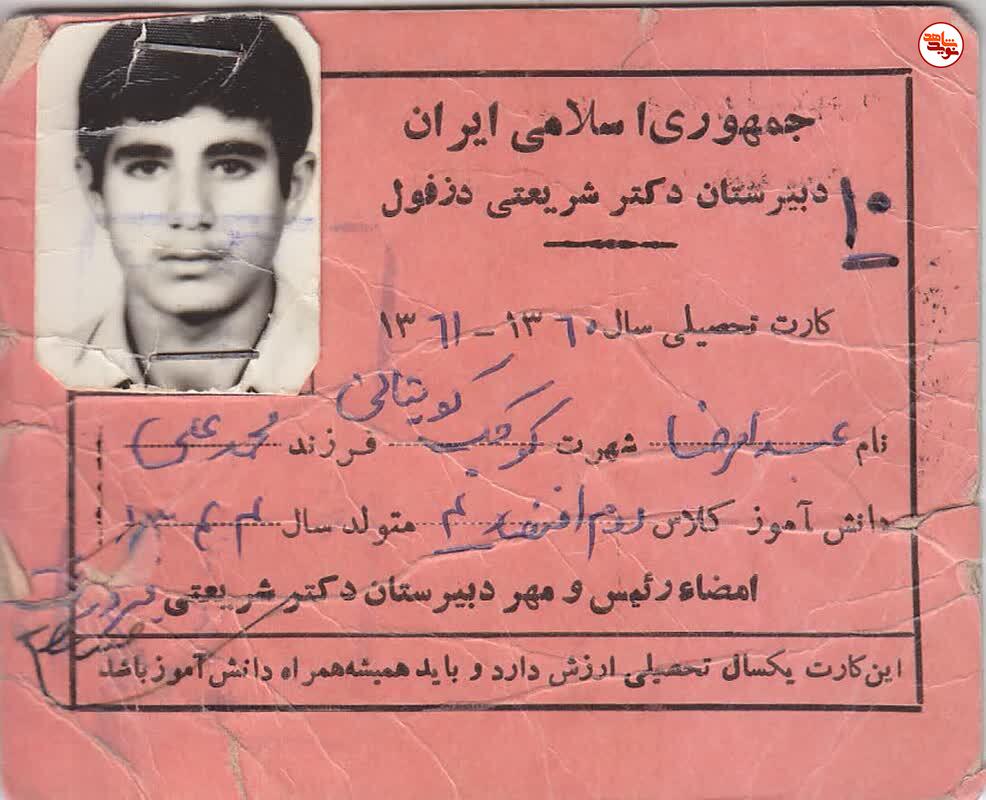 نوید شاهد
جمهوری اسلامی ایران
دبیرستان دکتر شریعتی دزفول
۱۰
کارت تحصیلی سال ۱۳۶۰ - ۱۳۶۱
نام عبدالرضا شهرت کوکب کویتائی فرزند محمد علی
دانش آموز کلاس دوم اقتصاد ۲ متولد سال ۱۳۴۴
امضاء رئیس و مهر دبیرستان دکتر شریعتی
این کارت یکسال تحصیلی ارزش دارد و باید همیشه همراه دانش آموز باشد